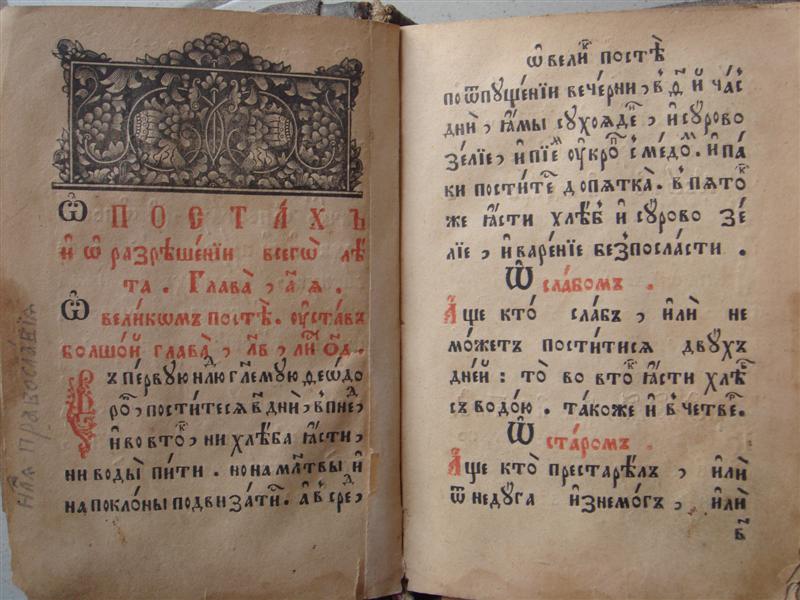 Ѽ ПОСТА́ХЪ
и҆ ѡ҆ разрѣше́нїи всегѡ̀ лѣ́
та . Глава̀ , а҃ ѧ .
Ѽ вели́кѡмъ постѣ̀ . оу҆ста́въ
болшо́й глава̀ , л҃в , ли́ о҃д .
Въ пе́рвую нлю гл҃емую ѳео҆до
ро , пости́тесѧ в҃ днѝ , в пне ,
и҆ во вто , ни хлѣ́ба ꙗ҆́сти ,
ни воды̀ пи́ти . но на мл҃твы и҆
на покло́ны подвиза́ти . а҆ в сре ,
нлѧ православїѧ
ѡ҆ вели постѣ̀
по ѿпуще́нїи вече́рни , в д҃ и҆ ча
днѝ , ꙗ҆́мы сухоѧде , и҆ су́рово
зе́лїе , и҆ пїе оу҆кро с медо . и҆ па́
ки пости́те до пѧтка̀ . в пѧто
же ꙗ҆́сти хлѣ́б и҆ су́рово зе́
лїе , и҆ варе́нїе без посла́сти .
Ѽ сла́бомъ .
А҆́ще кто̀ сла́бъ , и҆лѝ не
мо́жетъ пости́тисѧ двухъ
дне́й : то̀ во вто ꙗ҆́сти хлѣ
съ водо́ю . та́коже и҆ в че́тве .
Ѽ ста́ромъ .
А҆́ще кто̀ престарѣ́лъ , и҆лѝ
ѿ неду́га и҆знемо́гъ , и҆лѝ
в҃